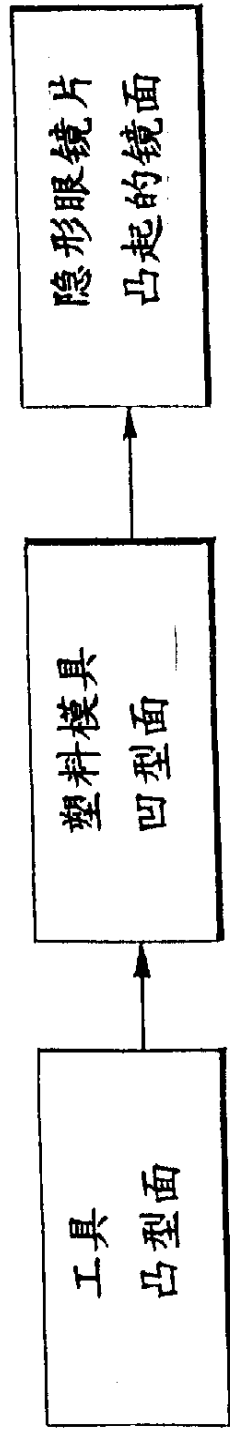 工具
凸型面
塑料模具
凹型面
隐形眼镜片
凸起的镜面